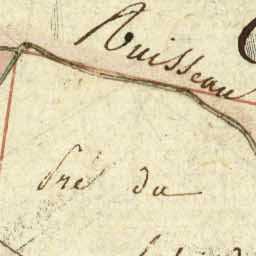 Ruisseau
Pré du